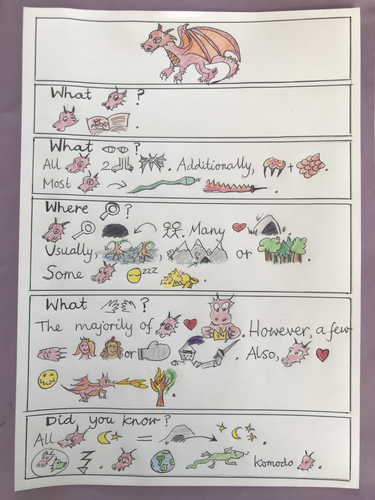 What ?
.
What ?
All 2 . Additionally, + .
Most .
Where ?
. Many .
Usually, , or .
Some zzz .
What ?
The majority of . However, a few
or . Also,
.
Did you know?
All = .
. komodo .